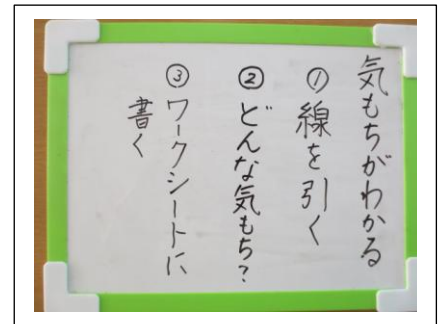 気もちがわかる
①線を引く
②どんな気もち?
③ワークシートに
書く